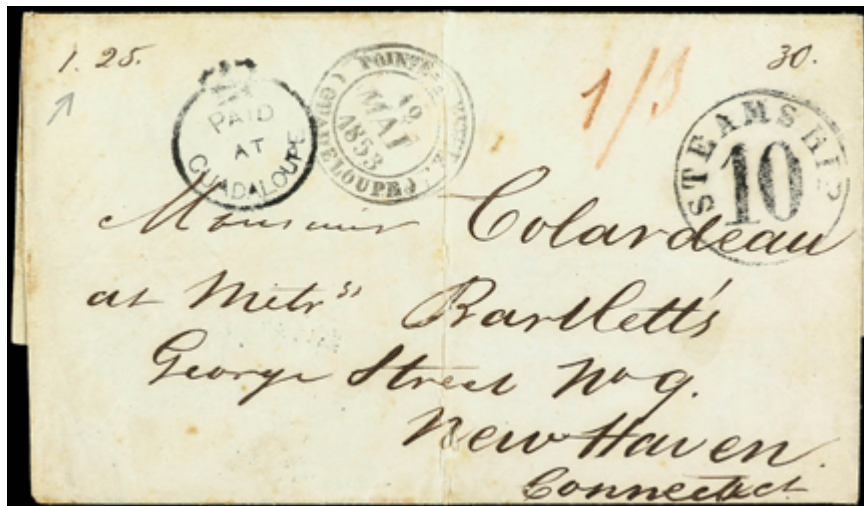 1. 25.
30.
PAID
AT
GUADALOUPE
POINTE-A-PITRE
10
MAI
1853
(GUADELOUPE)
1/3
STEAMSHIP
10
Monsieur Colardeau
at Metrss Bartlett's
George Street No 9.
New Haven.
Connecticut